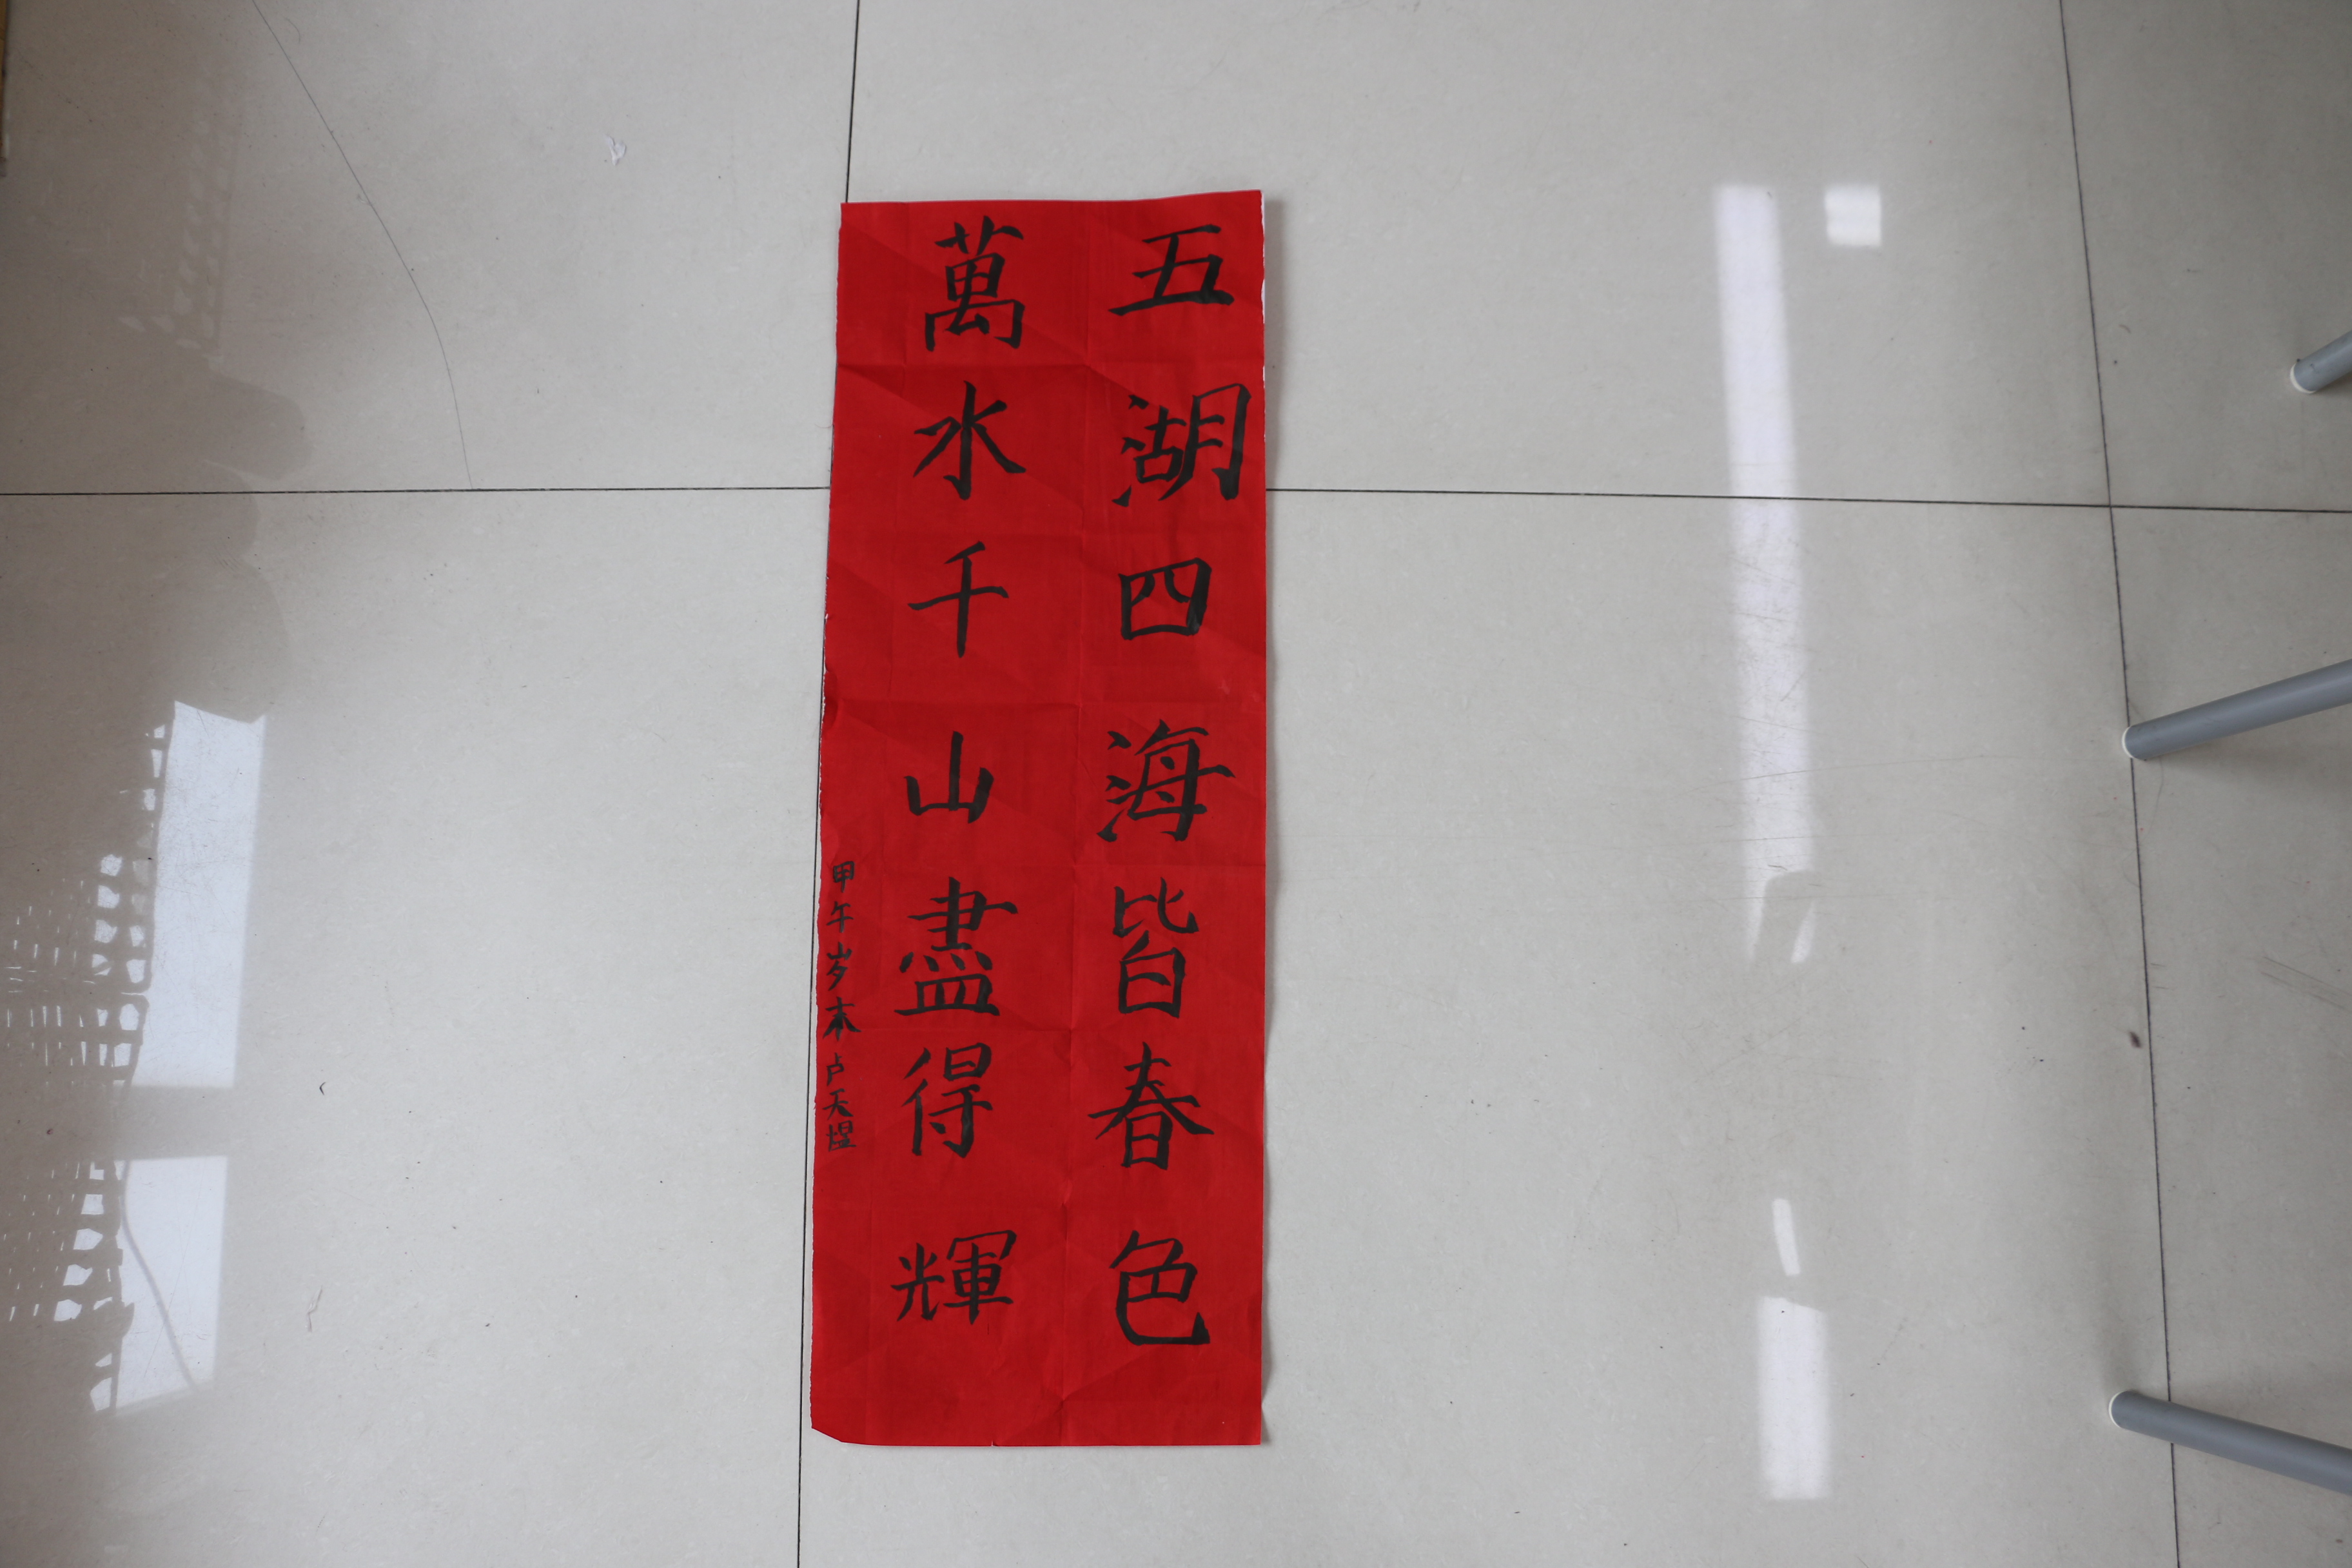 五湖四海皆春色
萬水千山盡得輝
甲午岁末卢天煜